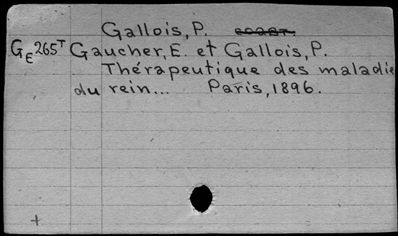 Gallois, P.
GE265T Gaucher, E. et Gallois, P.
Thérapeutique des maladie
du rein... Paris, 1896.
+